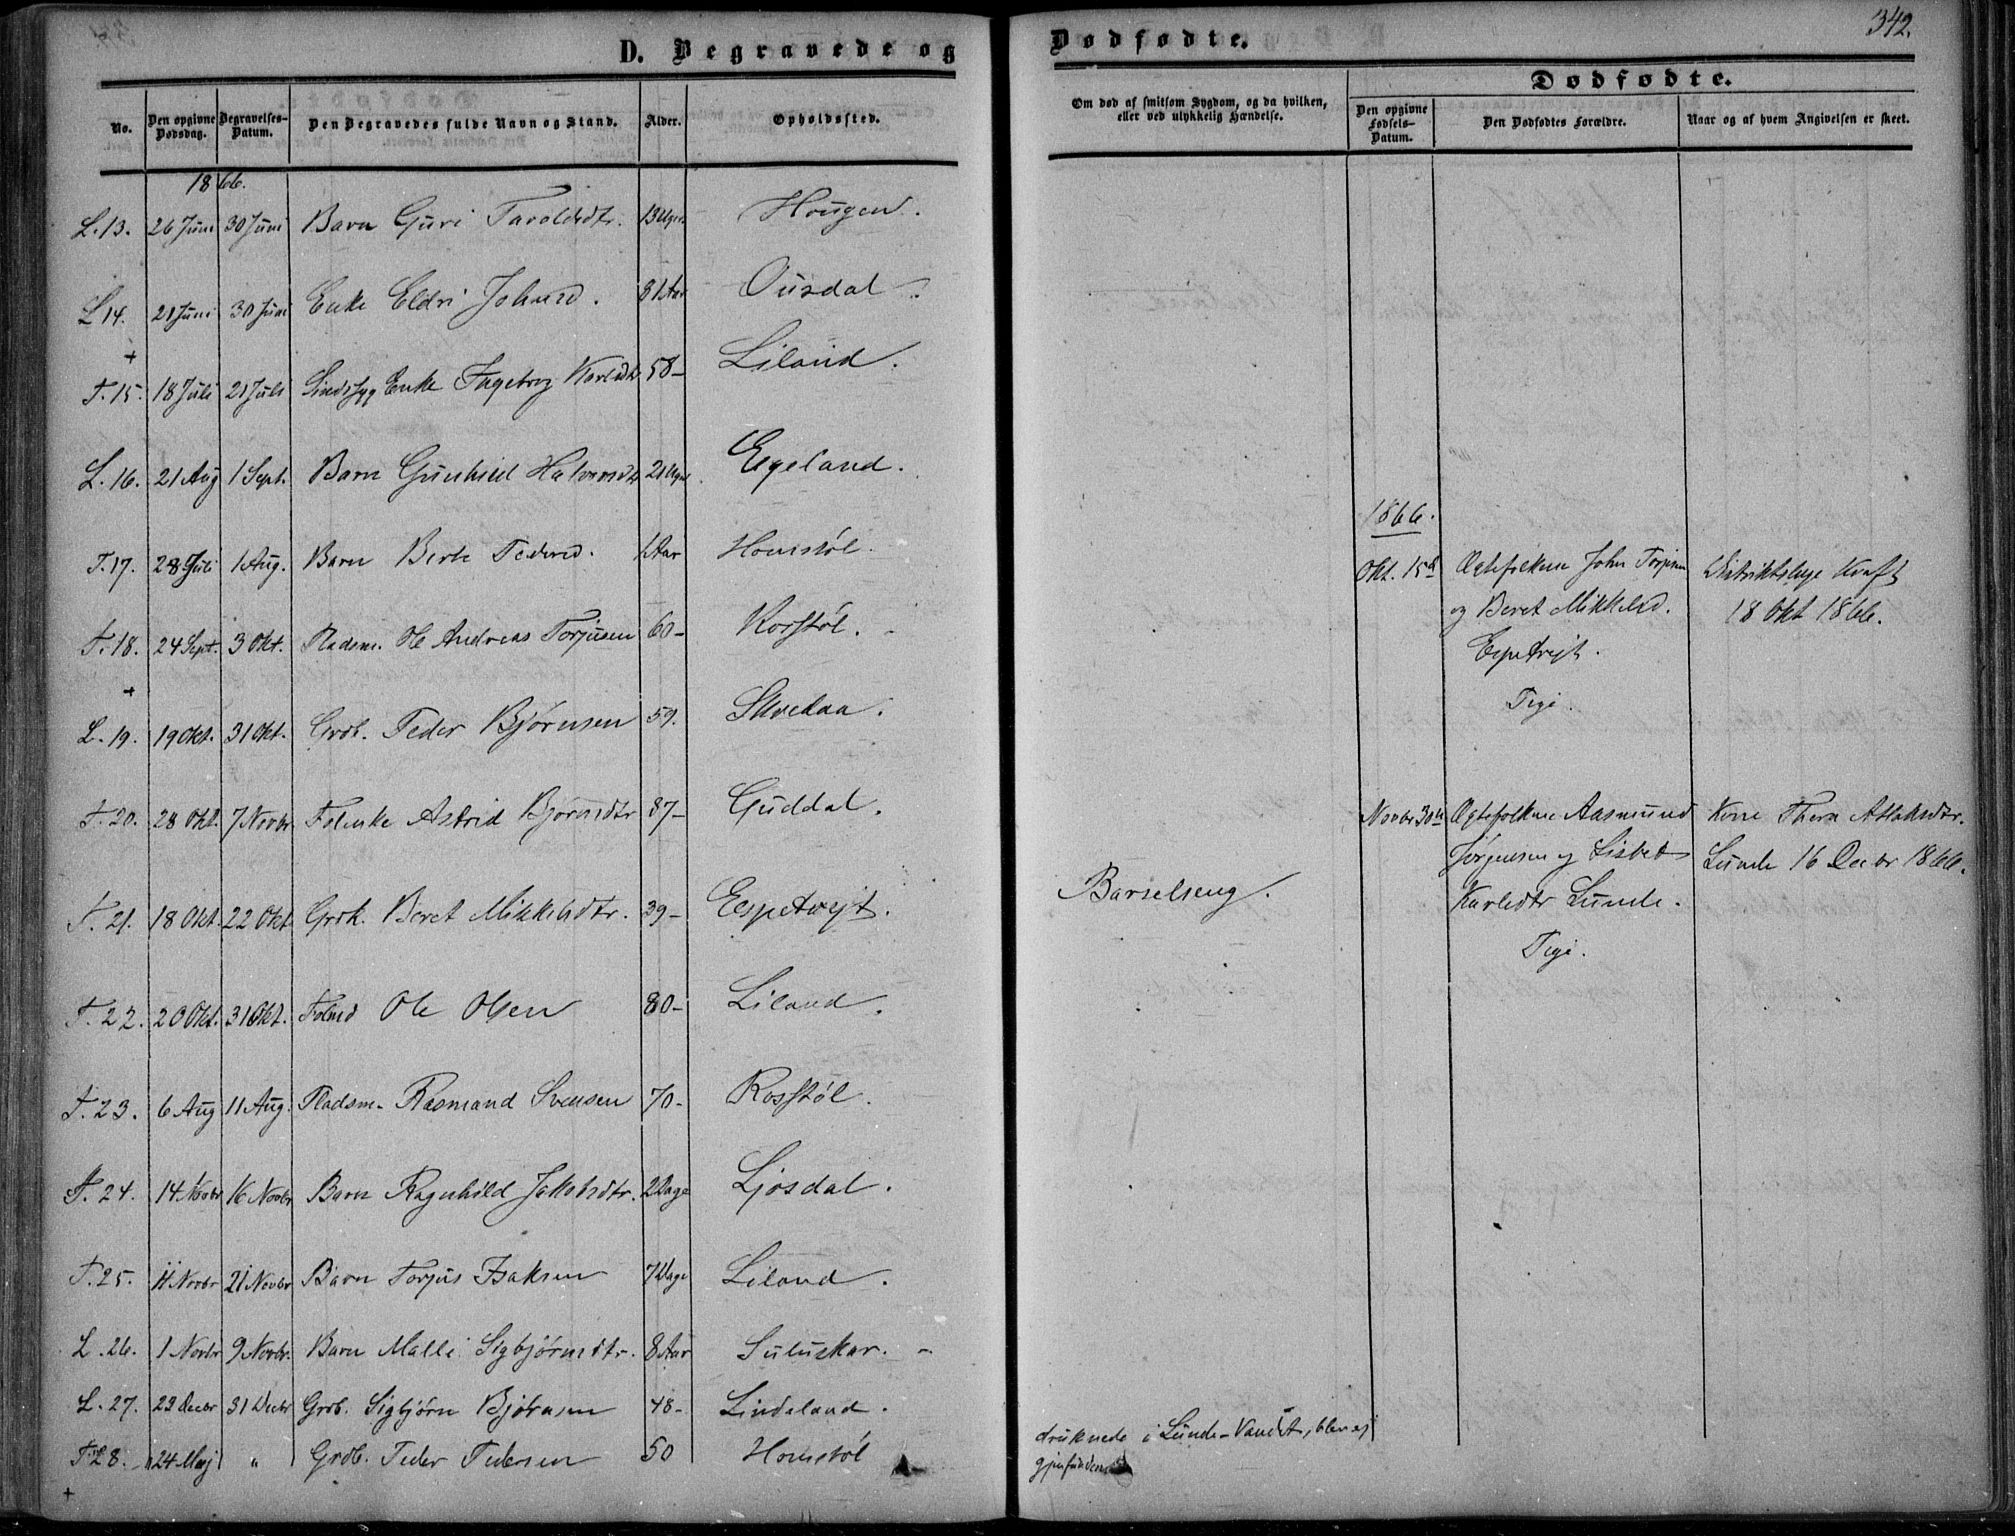 342.
D. Begravede og Dødfødte.
Dødfødte.
No. Den opgivne Dødsdag. Begravelses-Datum. Den Begravedes fulde Navn og Stand. Alder. Opholdssted.
Om død af smitsom Sygdom, og da hvilken, eller ved ulykkelig Hændelse. Den opgivne Fødsels-Datum. Den Dødfødtes Forældre. Naar og af hvem Angivelsen er skeet.
1866.
L. 13. 26 Juni 30 Juni Barn Guri Taraldsdtr. 13 Uger Hougen.
L 14. 21 Juni 30 Juni Enke Eldri Johnsd. 81 Aar Ousdal.
T. 15. 18 Juli 21 Juli Sindssyg Enke Ingebrg Karlsdtr 58- Liland.
L. 16. 21 Aug 1 Sept. Barn Gunhild Halvorsdtr Egeland.
T. 17. 28 Juli 1 Aug. Barn Berte Pedersd. 1 Aar Homstøl.
T. 18. 24 Sept. 3 Okt. Pladsm. Ole Andreas Torjusen 60- Rosstøl.
L. 19. 19 Okt. 31 Okt. Grdb. Peder Bjørnsen 59. Skvedaa.
T. 20. 28 Okt. 7 Novbr Folenke Astrid Bjørnsdtr 87- Guddal.
T. 21. 18 Okt. 22 Okt Grdk. Beret Mikkelsdtr. 39- Espetvejt.
T. 22. 20 Okt. 31 Okt. Folmd Ole Olsen 80- Liland.
T. 23. 6 Aug 11 Aug. Pladsm. Rasmund Svensen 70- Rosstøl.
T. 24. 14 Novbr 16 Novbr Barn Ragnhild Jakobsdtr. 2 Dage Ljosdal.
T. 25. 11 Novbr 21 Novbr Barn Torjus Isaksen 7 Dage Liland.
L. 26. 1 Novbr 9 Novbr. Barn Malli Sigbjørnsdtr. 8 Aar Suluskar.
L. 27. 23 Decbr 31 Decbr Grdb. Sigbjørn Bjørnsen 48- Lindeland.
T. 28. 24 Maj " Grdb. Peder Pedersen 50 Homstøl
1866.
Okt. 15de Ægtefolkene John Torjusen Distriktslæge Kraft
og Beret Mikkelsd. 18 Okt 1866.
Espetvejt.
Pige.
Novbr 30te Ægtefolkene Aasmund Kone Thora Aslaksdtr.
Jørgensen og Lisbet Lunde 16 Decbr 1866.
Karlsdtr Lunde.
Pige.
Barselseng.
druknede i Lunde-Vandet, blev ej
gjenfunden